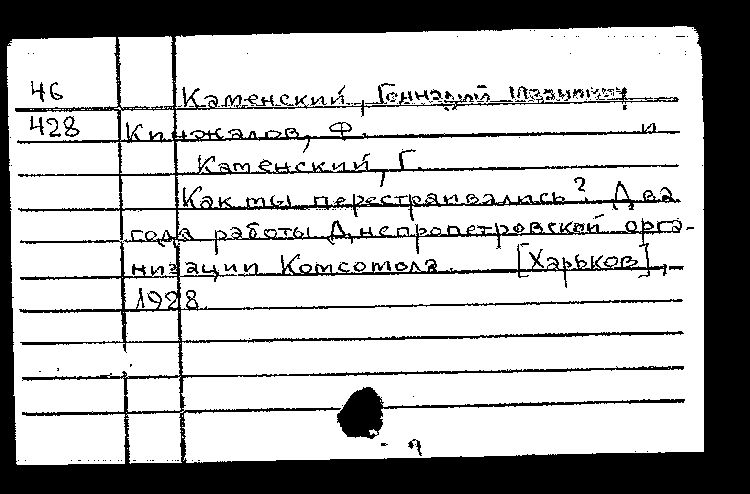 46 Каменский, Геннадий Иванович
428 Кинжалов, Ф. и
Каменский, Г.
Как мы перестраивались? Два
года работы Днепропетровской орга-
низации Комсомола. [Харьков],
1928.